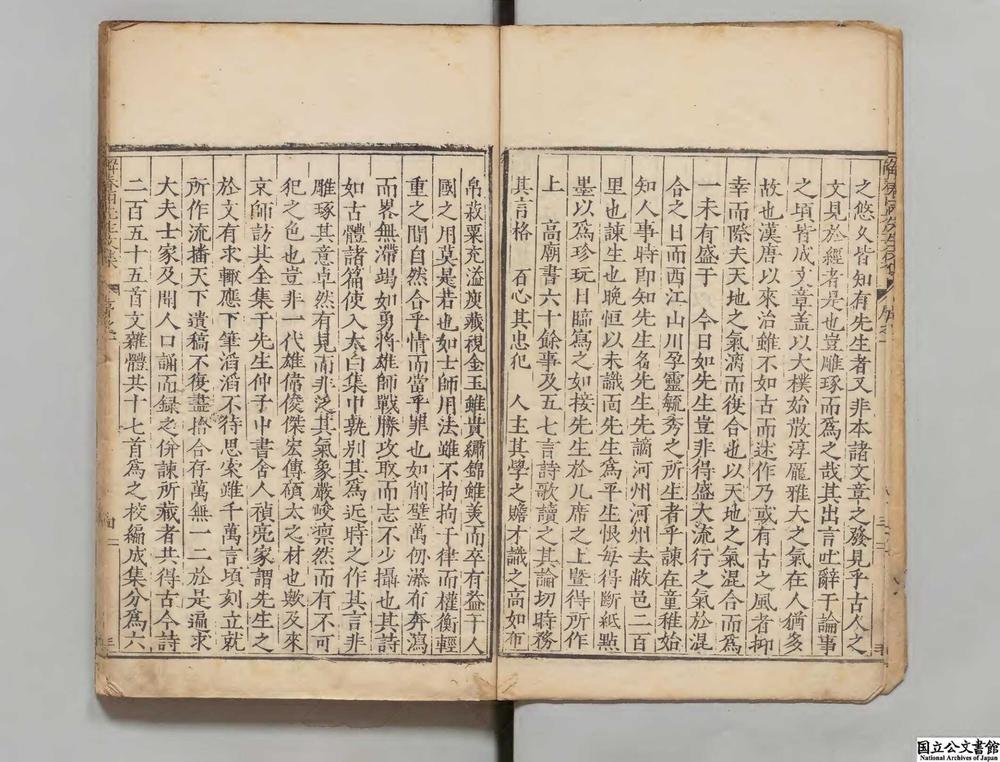 之悠久皆知有先生者又非本諸文章之發見乎古人之
文見於經者是也豈雕琢而為之哉其出言吐辭于論事
之頃皆成文章盖以大樸始散淳龐雅大之氣在人猶多
故也漢唐以來治雖不如古而述作乃或有古之風者抑
幸而際夫天地之氣漓而復合也以天地之氣混合而為
一未有盛于 今日如先生豈非得盛大流行之氣於混
合之日而西江山川孕靈毓秀之所生者乎諫在童稚始
知人事時即知先生名先生先生謫河州河州去敝邑二百
里也諫生也晚恒以未識面先生為平生恨每得斷紙點
墨以為珍玩日臨寫之如接先生於几席之上暨得所作
上 高廟書六十餘事及五七言詩歌讀之其論切時務
其言格 石心其忠犯 人主其學之贍才識之高如布
帛菽粟充溢庾藏視金玉雖貴繡錦雖美而卒有益于人
國之用莫是若也如士師用法雖不拘拘于律而權衡輕
重之間自然合乎情而當乎罪也如削壁萬仞瀑布奔瀉
而畧無滯竭如勇將雄師戰勝攻取而志不少攝也其詩
如古體諸篇使入太白集中孰别其為近時之作其言非
雕琢其意卓然有見而非泛其氣象嚴峻凛然而有不可
犯之色也豈非一代雄偉俊傑宏傳碩大之材也歟及來
京師訪其全集于先生仲子中書舍人禎亮家謂先生之
於文有求輙應下筆滔滔不待思案雖千萬言頃刻立就
所作流播天下遺稿不復盡㨿合存萬無一二於是遍求
大夫士家及閭人口誦而録之併諫所藏者共得古今詩
二百五十五首文雜體共十七首為之校編成集分為六
国立公文書館
National Archives of Japan